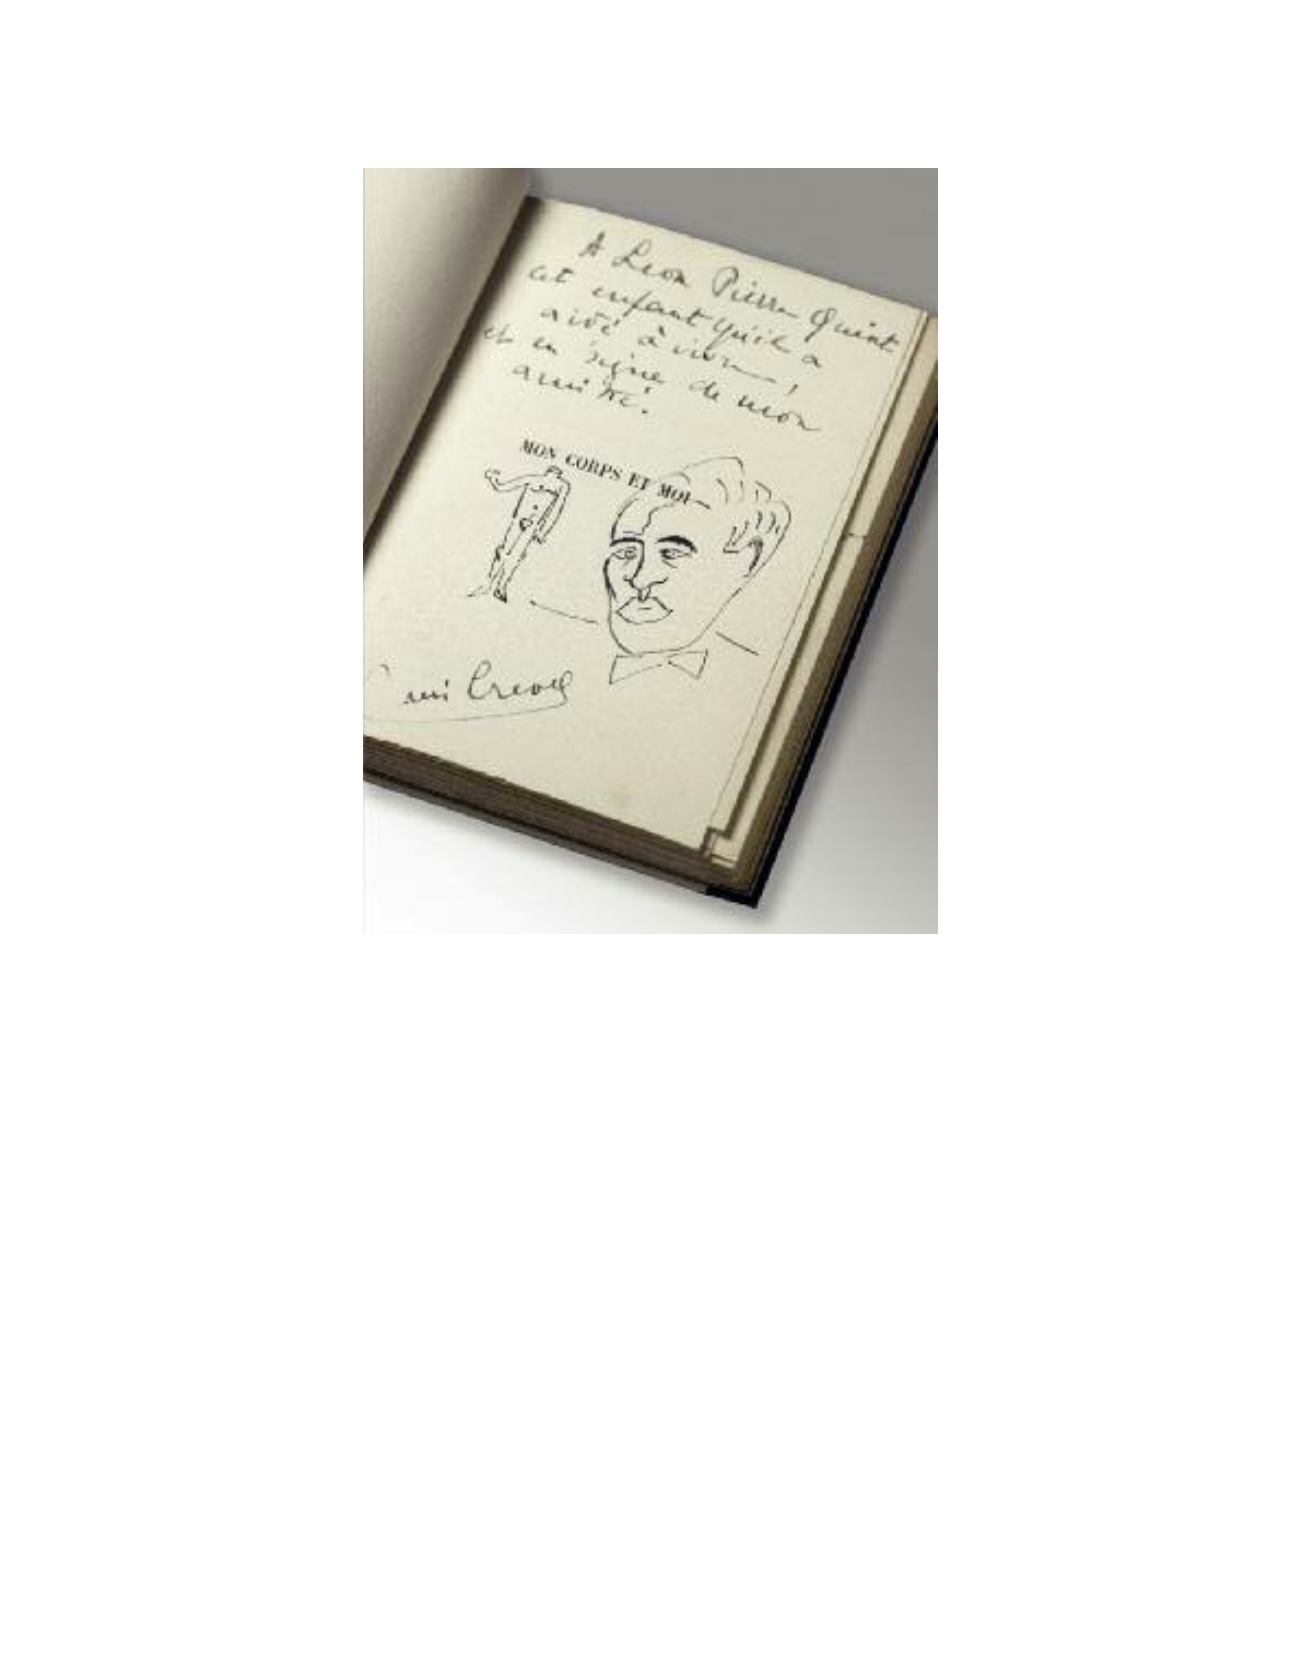 A Leon Pierre Quint
cet enfant qu'il a
aidé à vivre,
et en signe de mon
amitié.
MON CORPS ET MOI
Crevel